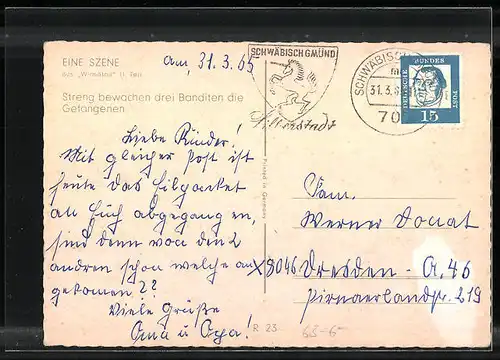 EINE SZENE
aus „Winnetou“ 1. Teil
Streng bewachen drei Banditen die
Gefangenen
am, 31.3.65
Liebe Kinder!
Mit gleicher Post ist
heute das Eilpacket
an Euch abgegang en,
sind denn von den 2
andren schon welche an
gekomen??
Viele Grüße
Oma u Opa!
SCHWÄBISCH GMÜND
SCHWÄBISCH
31.3.
70
DEUTSCHE BUNDESPOST
15
Printed in Germany
Fam.
Werner Donat
X 8046 Dresden - A. 46
Pirnaerlandstr. 219
R 23